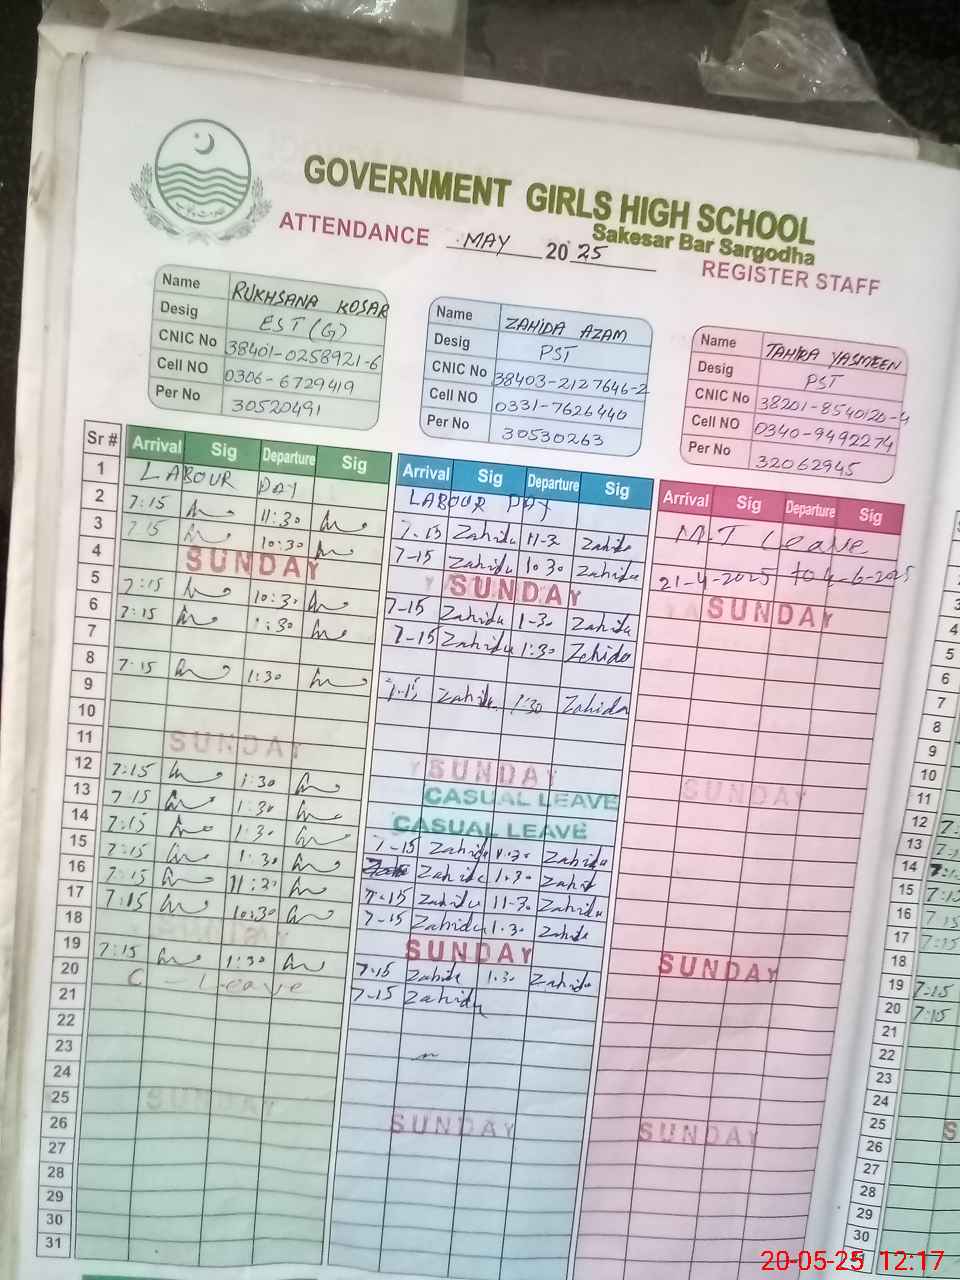 GOVERNMENT GIRLS HIGH SCHOOL
Sakesar Bar Sargodha
ATTENDANCE MAY 2025
REGISTER STAFF
Name RUKHSANA KOSAR
Desig EST (G)
CNIC No 38401-0258921-6
Cell NO 0306-6729419
Per No 30520491
Name ZAHIDA AZAM
Desig PST
CNIC No 38403-2127646-2
Cell NO 0331-7626440
Per No 30530263
Name TAHIRA YASMEEN
Desig PST
CNIC No 38201-8540120-4
Cell NO 0340-9492274
Per No 32062945
Sr # Arrival Sig Departure Sig Arrival Sig Departure Sig Arrival Sig Departure Sig
1 LABOUR DAY LABOUR DAY M.T Leave
2 7:15 11:30 7-15 Zahida 11-3 Zahida
3 7:15 10:30 7-15 Zahida 10:30 Zahida 21-4-2025 to 4-6-2025
4 SUNDAY SUNDAY SUNDAY
5 7:15 10:30 7-15 Zahida 1-30 Zahida
6 7:15 1:30 7-15 Zahida 1:30 Zahida
7
8 7:15 1:30 Zahida 1:30 Zahida
9
10
11 SUNDAY SUNDAY SUNDAY
12 7:15 1:30 CASUAL LEAVE
13 7:15 1:30 CASUAL LEAVE
14 7:15 1:30 7-15 Zahida 1:30 Zahida
15 7:15 1:30 Zahida 1:30 Zahida
16 7:15 11:30 7-15 Zahida 11-30 Zahida
17 7:15 10:30 7-15 Zahida 1:30 Zahida
18 SUNDAY SUNDAY SUNDAY
19 7:15 1:30 7-15 Zahida 1:30 Zahida
20 C - Leave 7-15 Zahida
21
22
23
24
25 SUNDAY SUNDAY SUNDAY
26
27
28
29
30
31
3
4
5
6
7
8
9
10
11
12 7:
13 7:1
14 7:1
15 7:15
16 7:15
17 7:15
18
19 7:15
20 7:15
21
22
23
24
25 S
26
27
28
29
30
20-05-25 12:17